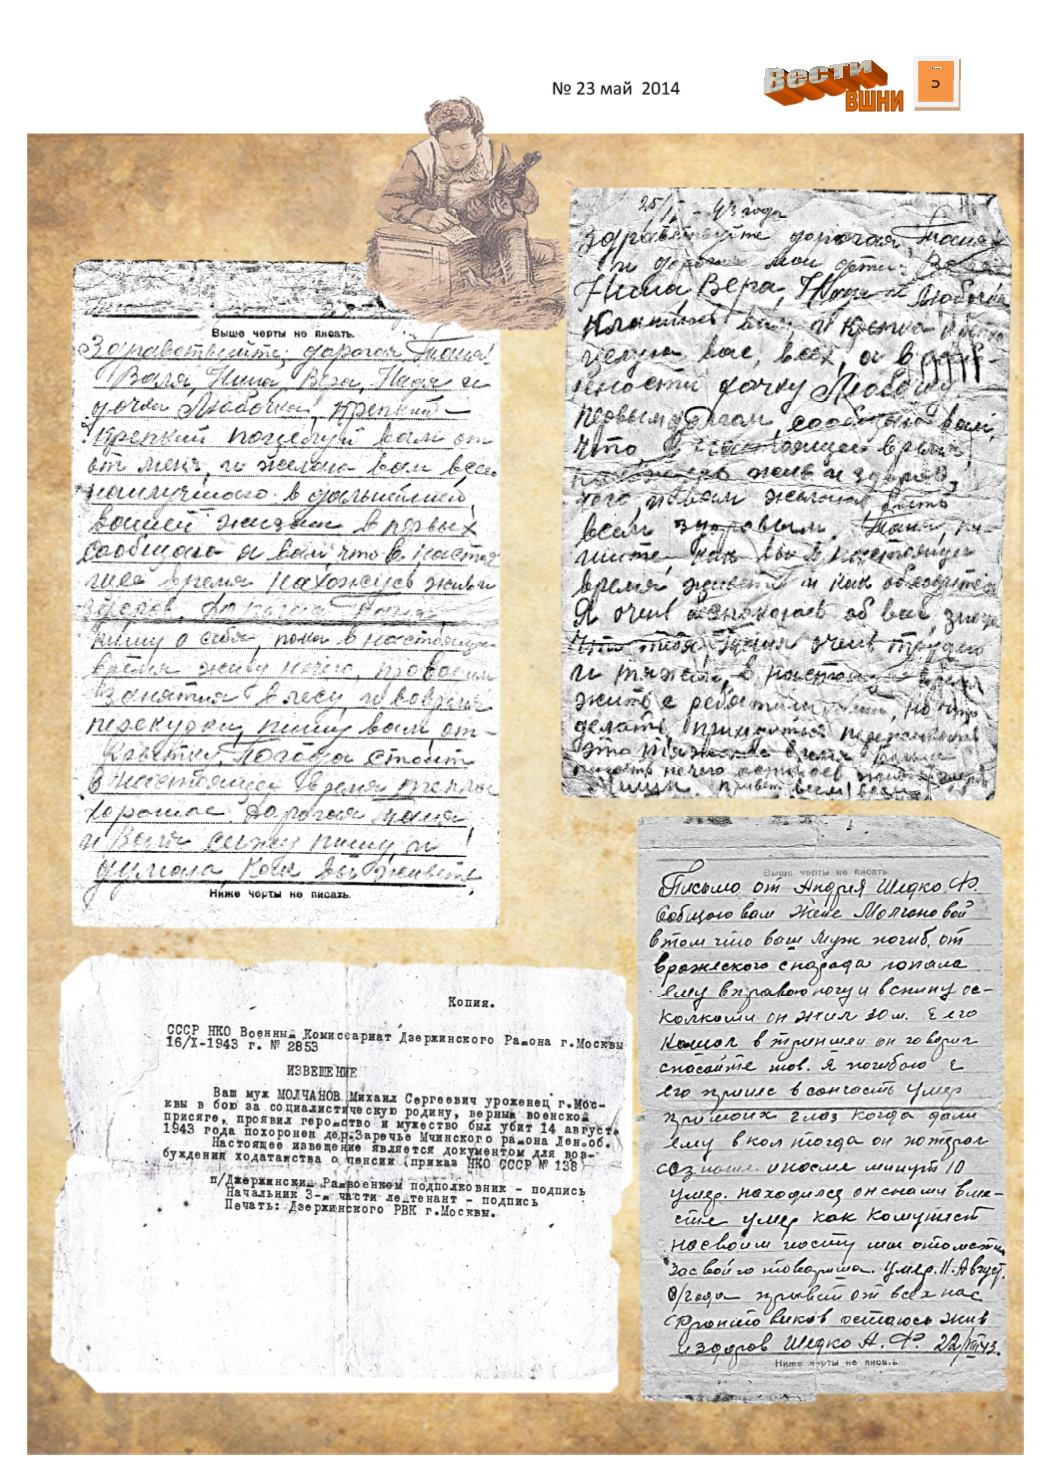 № 23 май 2014
Вести
ВШНИ
5
Выше черты не писать.
Здравствуйте, дорогая Таня!
Валя, Нина, Вера, Надя и
дочка Любочка, крепкий-
крепкий поцелуй вам от
от меня, и желаю вам всего
наилучшего в дальнейшей
вашей жизни в первых
сообщаю я вам, что в настоя
щее время нахожусь жив и
здоров. Дорогая Таня,
пишу о себя, пока в настоящее
время живу нечего, проводим
занятия в лесу, и вовремя
перекурки, пишу вам, от-
погода стоит
в настоящее время теплое
хорошое. Дорогая Таня,
и Валя сижу пишу, и
думаю, как вы живете,
Ниже черты не писать.
25/ - 43 года
Здравствуйте дорогая Таня
и дорогие мои дети: Валя
Нина, Вера, Надя и Любочка
Кланяюсь вам и крепко
целую вас, всех, а в осо-
нности дочку Любочку
первым долгом, сообщаю вам,
что в настоящее время,
нахожусь жив и здоров,
чего и вам желаю быть
всем здоровым. Таня, пи-
шите, как вы в настоящее
время живете и как обходитесь
Я очень безпокоюсь об вас, знаю
что тебя, Таня очень трудно
и тяжело, в настоящее время
жить с ребятами, но что
делать, приходиться переживать
это тяжелое время
нечего остаюсь жив
привет всем
Выше черты не писать.
Письмо от Андрия Шедко. Ф.
Собщою вам Жене Молчановой
втом что ваш муж погиб, от
вражеского снаряда попала
ему вправою ногу и вспину ос-
колками он жил 30 м. Я его
в траншеи он говорил
спосайте тов. Я погибою Я
его принес в санчасть умер
примоих глаз когда дали
ему вкол тогда он потерял
созноние ипосле минут 10
умер. находился он снами вме-
сте умер как комунист
насвоим посту мы отомстим
засвоего товарища. умер. 14. Август.
года привет от всех нас
фронтовиков остаюсь жив
издоров Шедко А. Ф. 22/VIII 43.
Ниже черты не писать.
Копия.
СССР НКО Военный Комиссариат Дзержинского Района г.Москвы
16/X-1943 г. № 2853
ИЗВЕЩЕНИЕ
Ваш муж МОЛЧАНОВ Михаил Сергеевич уроженец г.Мос-
квы в бою за социалистическую родину, верный военской
присяге, проявил геройство и мужество был убит 14 августа
1943 года похоронен дер.Заречье Мчинского района Лен.об.
Настоящее извещение является документом для воз-
буждения ходатайства о пенсии (приказ НКО СССР № 138)
п/Джержинский Райвоенком подполковник - подпись
Начальник 3-й части лейтенант - подпись
Печать: Дзержинского РВК г.Москвы.